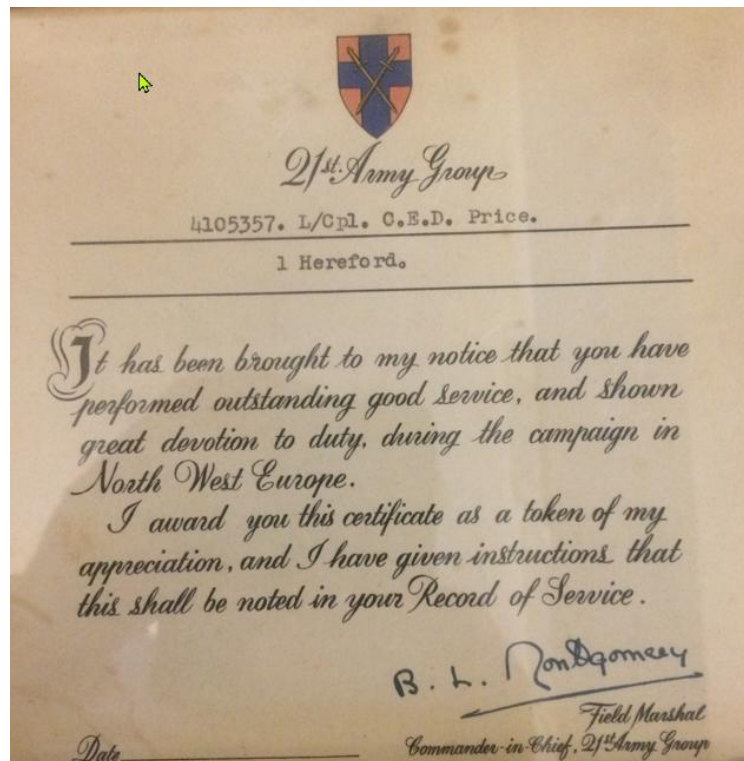 21st. Army Group
4105357. L/Cpl. C.E.D. Price.
1 Hereford.
It has been brought to my notice that you have
performed outstanding good service, and shown
great devotion to duty, during the campaign in
North West Europe.
I award you this certificate as a token of my
appreciation, and I have given instructions that
this shall be noted in your Record of Service.
B. L. Montgomery
Field Marshal
Date
Commander-in-Chief, 21st Army Group